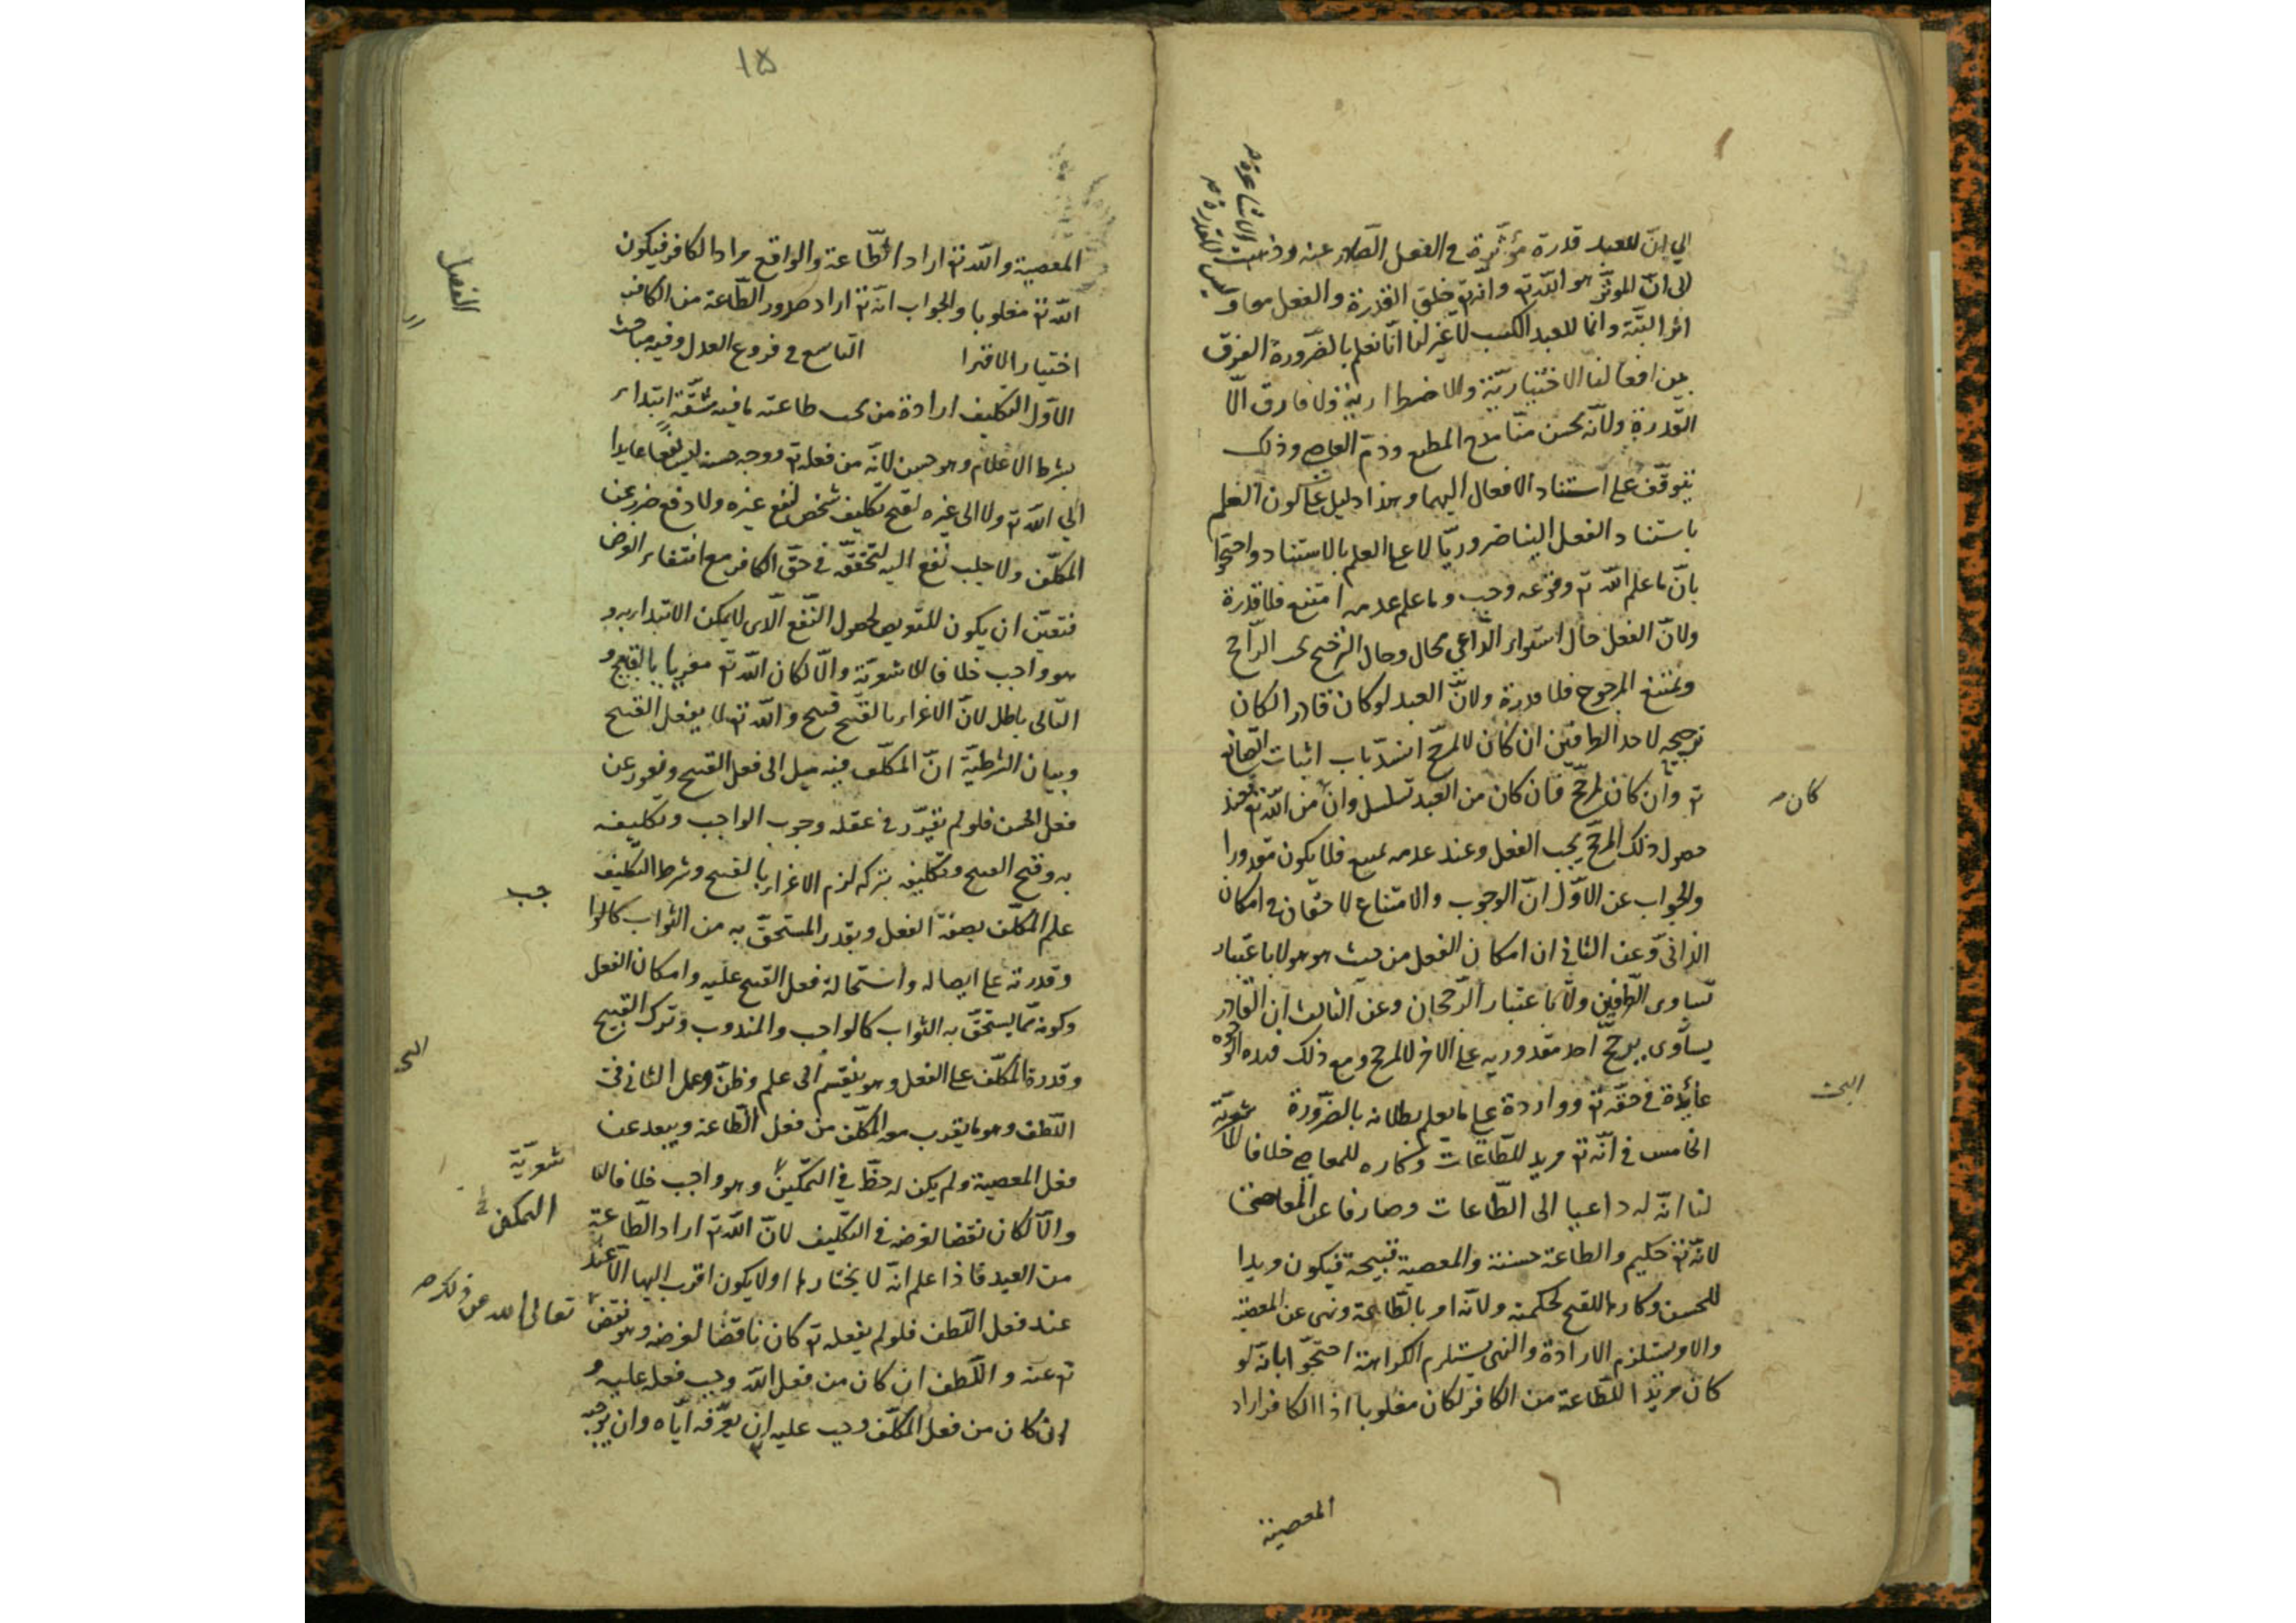 الي ان للعبد قدرة مؤثرة في الفعل الصادر عنه وذهبت الاشاعرة
الى ان الموثر هو الله تع وانه تع خلق القدرة والفعل معا وليس للقدرة
اثر البتة وانما للعبد الكسب لا غير لنا انا نعلم بالضرورة الفرق
بين افعالنا الاختيارية والاضطرارية ولا فارق الا
القدرة ولانه يحسن منا مدح المطيع وذم العاصي وذلك
يتوقف على استناد الافعال اليهما وهذا دليل على كون العلم
باستناد الفعل الينا ضروريا لا على العلم بالاستناد واحتجوا
بان ما علم الله تع وقوعه وجب وما علم عدمه امتنع فلا قدرة
ولان الفعل حال استواء الداعي محال وحال الترجيح يجب الراجح
ويمتنع المرجوح فلا قدرة ولان العبد لو كان قادرا لكان
ترجيحه لاحد الطرفين ان كان لا لمرجح انسد باب اثبات الصانع
تع وان كان لمرجح فان كان من العبد تسلسل وان من الله تع فعند
كان
حصول ذلك المرجح يجب الفعل وعند عدمه يمتنع فلا يكون مقدورا
والجواب عن الاول ان الوجوب والامتناع لاحقان في امكان
الذاتي وعن الثاني ان امكان الفعل من حيث هو هو لا باعتبار
تساوى الطرفين ولا باعتبار الرجحان وعن الثالث ان القادر
يساوى يرجح احد مقدوريه على الاخر لا لمرجح ومع ذلك فهذه الوجوه
عائدة في حقه تع وواردة على ما يعلم بطلانه بالضرورة
البحث
الخامس في انه تع مريد للطاعات وكاره للمعاصي خلافا للاشعرية
لنا ان له داعيا الى الطاعات وصارفا عن المعاصي
لانه تع حكيم والطاعة حسنة والمعصية قبيحة فيكون مريدا
للحسن وكارها للقبيح لحكمته ولانه امر بالطاعة ونهى عن المعصية
والامر يستلزم الارادة والنهى يستلزم الكراهة احتجوا بانه لو
كان مريدا للطاعة من الكافر لكان مغلوبا اذ الكافر اراد
المعصية
١٥
المعصية والله تع اراد الطاعة والواقع مراد الكافر فيكون
الله تع مغلوبا والجواب انه تع اراد صدور الطاعة من الكافر
اختيارا لا قهرا
الفصل
التاسع في فروع العدل وفيه مباحث
الاول التكليف ارادة من يجب طاعته ما فيه مشقة ابتداء
بشرط الاعلام وهو حسن لانه من فعله تع ووجه حسنه ليس نفعا عايدا
الي الله تع ولا الى غيره لقبح تكليف شخص لنفع غيره ولا دفع ضرر عن
المكلف ولا جلب نفع اليه لتحققه في حق الكافر مع انتفاء الغرض
فتعين ان يكون للتعريض لحصول النفع الذى لا يمكن الابتداء به و
هو واجب خلافا للاشعرية والا لكان الله تع مغريا بالقبيح و
التالى باطل لان الاغراء بالقبيح قبيح والله تع لا يفعل القبيح
وبيان الشرطية ان المكلف فيه ميل الى فعل القبيح ونفور عن
فعل الحسن فلو لم يتقرر في عقله وجوب الواجب وتكليفه
به وقبح القبيح وتكليفه بتركه لزم الاغراء بالقبيح وشرط التكليف
علم المكلف بصفة الفعل وبقدر المستحق به من الثواب كالوا
جب
وقدرته على ايصاله واستحالة فعل القبيح عليه وامكان الفعل
وكونه مما يستحق به الثواب كالواجب والمندوب وترك القبيح
وقدرة المكلف على الفعل وهو ينقسم الى علم وظن وعمل الثاني في
البحث
اللطف وهو ما يقرب معه المكلف من فعل الطاعة ويبعد عن
فعل المعصية ولم يكن له حظ في التمكين وهو واجب خلافا للا
شعرية
التمكن
والا لكان نقضا لغرضه في التكليف لان الله تع اراد الطاعة
من العبد فاذا علم انه لا يختارها او لا يكون اقرب اليها الا عند
عند فعل اللطف فلو لم يفعله تع كان ناقضا لغرضه وهو نقض
تعالى الله عن ذلك
تع عنه واللطف ان كان من فعل الله وجب فعله عليه و
ان كان من فعل المكلف وجب عليه ان يعرفه اياه وان يوجبه